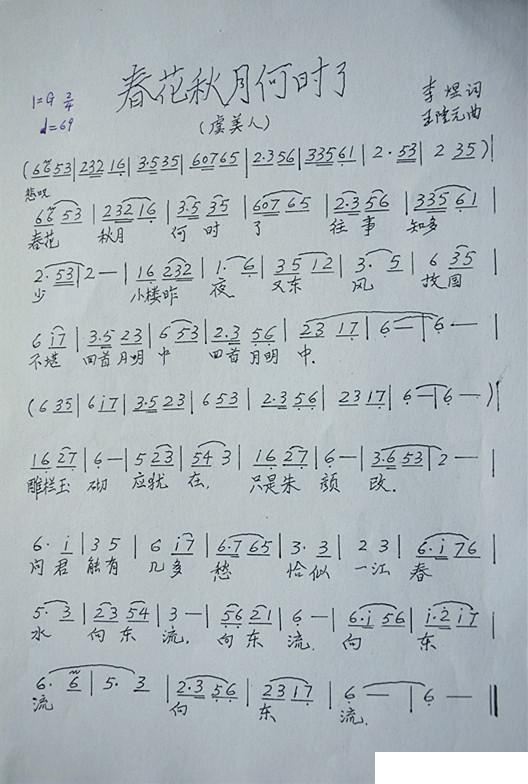 春花秋月何时了
(虞美人)
1=G 2/4
♩=69
李煜词
王隆元曲
(6653|232 16|3·535|60765|2·356|33561|2·53|2 35)|
悲叹
6653|232 16|3·5 35|607 65|2·3 56|335 61|
春花 秋月 何 时 了 往 事 知多
2·53|2—|16 232|1· 6|35 12|3· 5|6 35|
少 小楼昨 夜 又东 风 故国
6 i7|3·5 23|6 53|2·3 56|23 17|6—|6—|
不堪 回首月明 中 回首 月明 中.
(6 35|6 i7|3·5 23|6 53|2·3 56|23 17|6—|6—)|
16 27|6—|5 23|54 3|16 27|6—|3·6 53|2—|
雕栏玉 砌 应犹 在, 只是朱 颜 改.
6· i|3 5|6 i7|6·7 65|3· 3|2 3|6·i 76|
问 君 能有 几多 愁 恰似 一江 春
5· 3|23 54|3—|56 21|6—|6·i 56|i·2 i7|
水 向 东 流, 向东 流. 向 东
6· 6|5· 3|2·3 56|23 17|6—|6—‖
流 向 东 流.